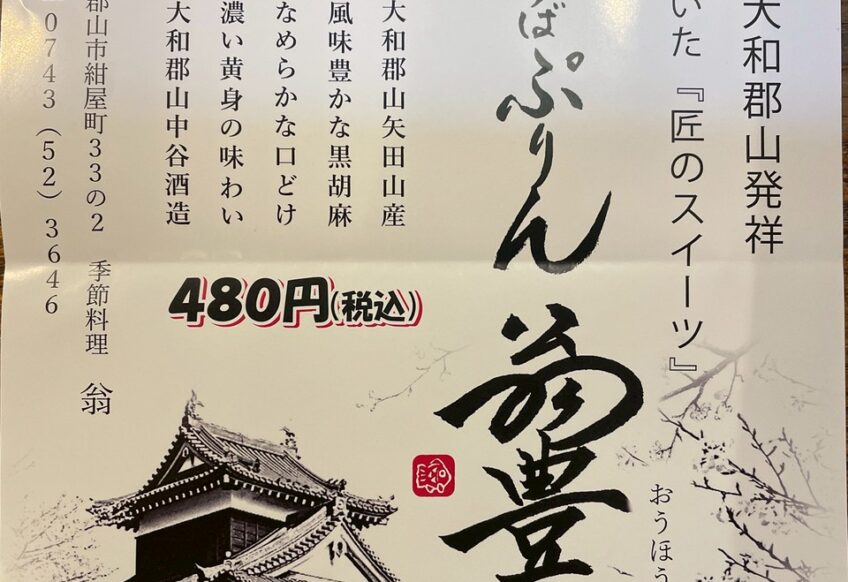 大和郡山発祥
いた『匠のスイーツ』
ばぷりん
翁豊
おうほう
大和郡山矢田山産
風味豊かな黒胡麻
なめらかな口どけ
濃い黄身の味わい
大和郡山中谷酒造
480円(税込)
郡山市紺屋町33の2 季節料理 翁
0743(52)3646